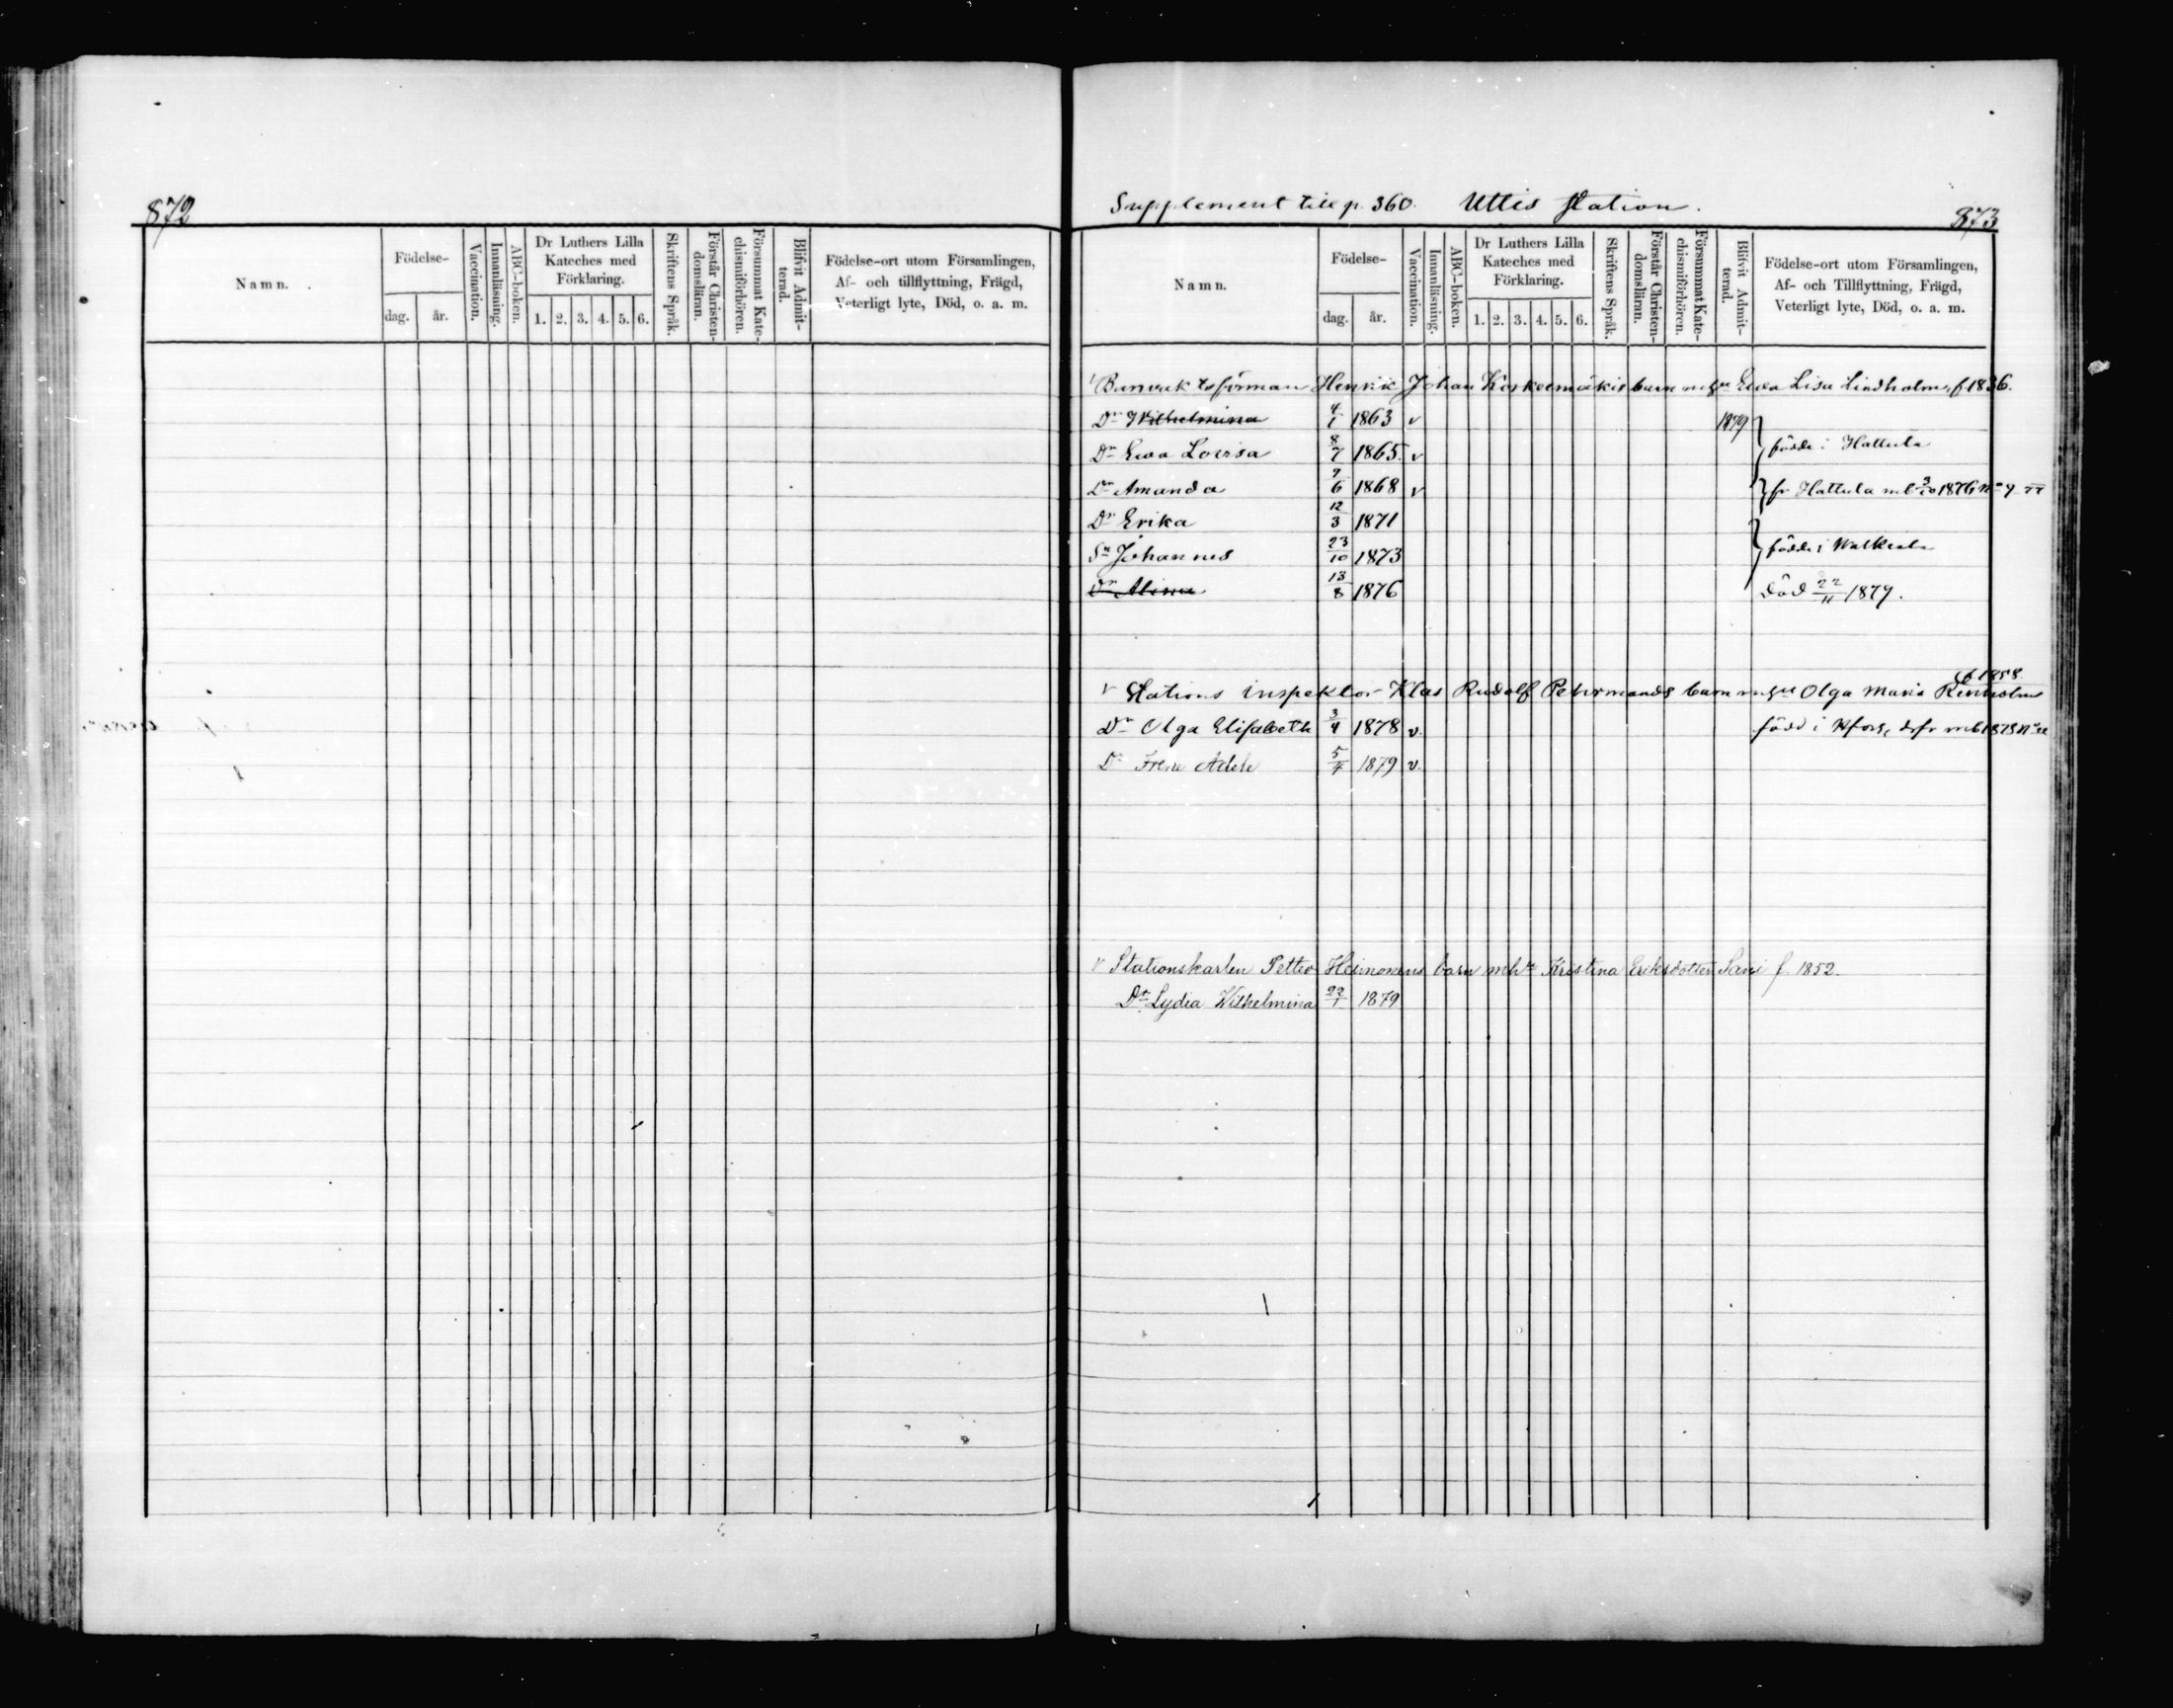 872
Namn. Födelse- dag. år. Vaccination. Innanläsning. ABC-boken. Dr Luthers Lilla Kateches med Förklaring. 1. 2. 3. 4. 5. 6. Skriftens Språk. Förstår Christen-domsläran. Försummat Kate-chismiförhören. Blifvit Admit-terad. Födelse-ort utom Församlingen, Af- och tillflyttning, Frägd, Veterligt lyte, Död, o. a. m.
Supplement till p. 360. Uttis Station. 873
Namn. Födelse- dag. år. Vaccination. Innanläsning. ABC-boken. Dr Luthers Lilla Kateches med Förklaring. 1. 2. 3. 4. 5. 6. Skriftens Språk. Förstår Christen-domsläran. Försummat Kate-chismiförhören. Blifvit Admit-terad. Födelse-ort utom Församlingen, Af- och Tillflyttning, Frägd, Veterligt lyte, Död, o. a. m.
Banvaktsförman Henrik Johan Koskeemäkis barn m hu Ewa Lisa Lindholm, f 1836.
Dr Wilhelmina 4/1 1863 v 1879
Dr Ewa Lovisa 8/7 1865. v födde i Hattula
Dr Amanda 7/6 1868 v fr Hattula mb 3/10 1876 No
Dr Erika 12/3 1871
Sn Johannes 23/10 1873 födde i Walkeala
Dr Alina 13/8 1876 död 22/11 1879.
f 1858
v Stations inspektor Klas Rudolf Pehrmands barn m hu Olga Maria
Dr Olga Elisabeth 3/4 1878 v. född i Hfors, drfr mb 1878 No
Dr Irene Adele 5/7 1879 v.
v Stationskarlen Petter Heimonens barn m hu Kristina Eriksdotter Savi f. 1852.
Dr Lydia Wilhelmina 22/1 1879